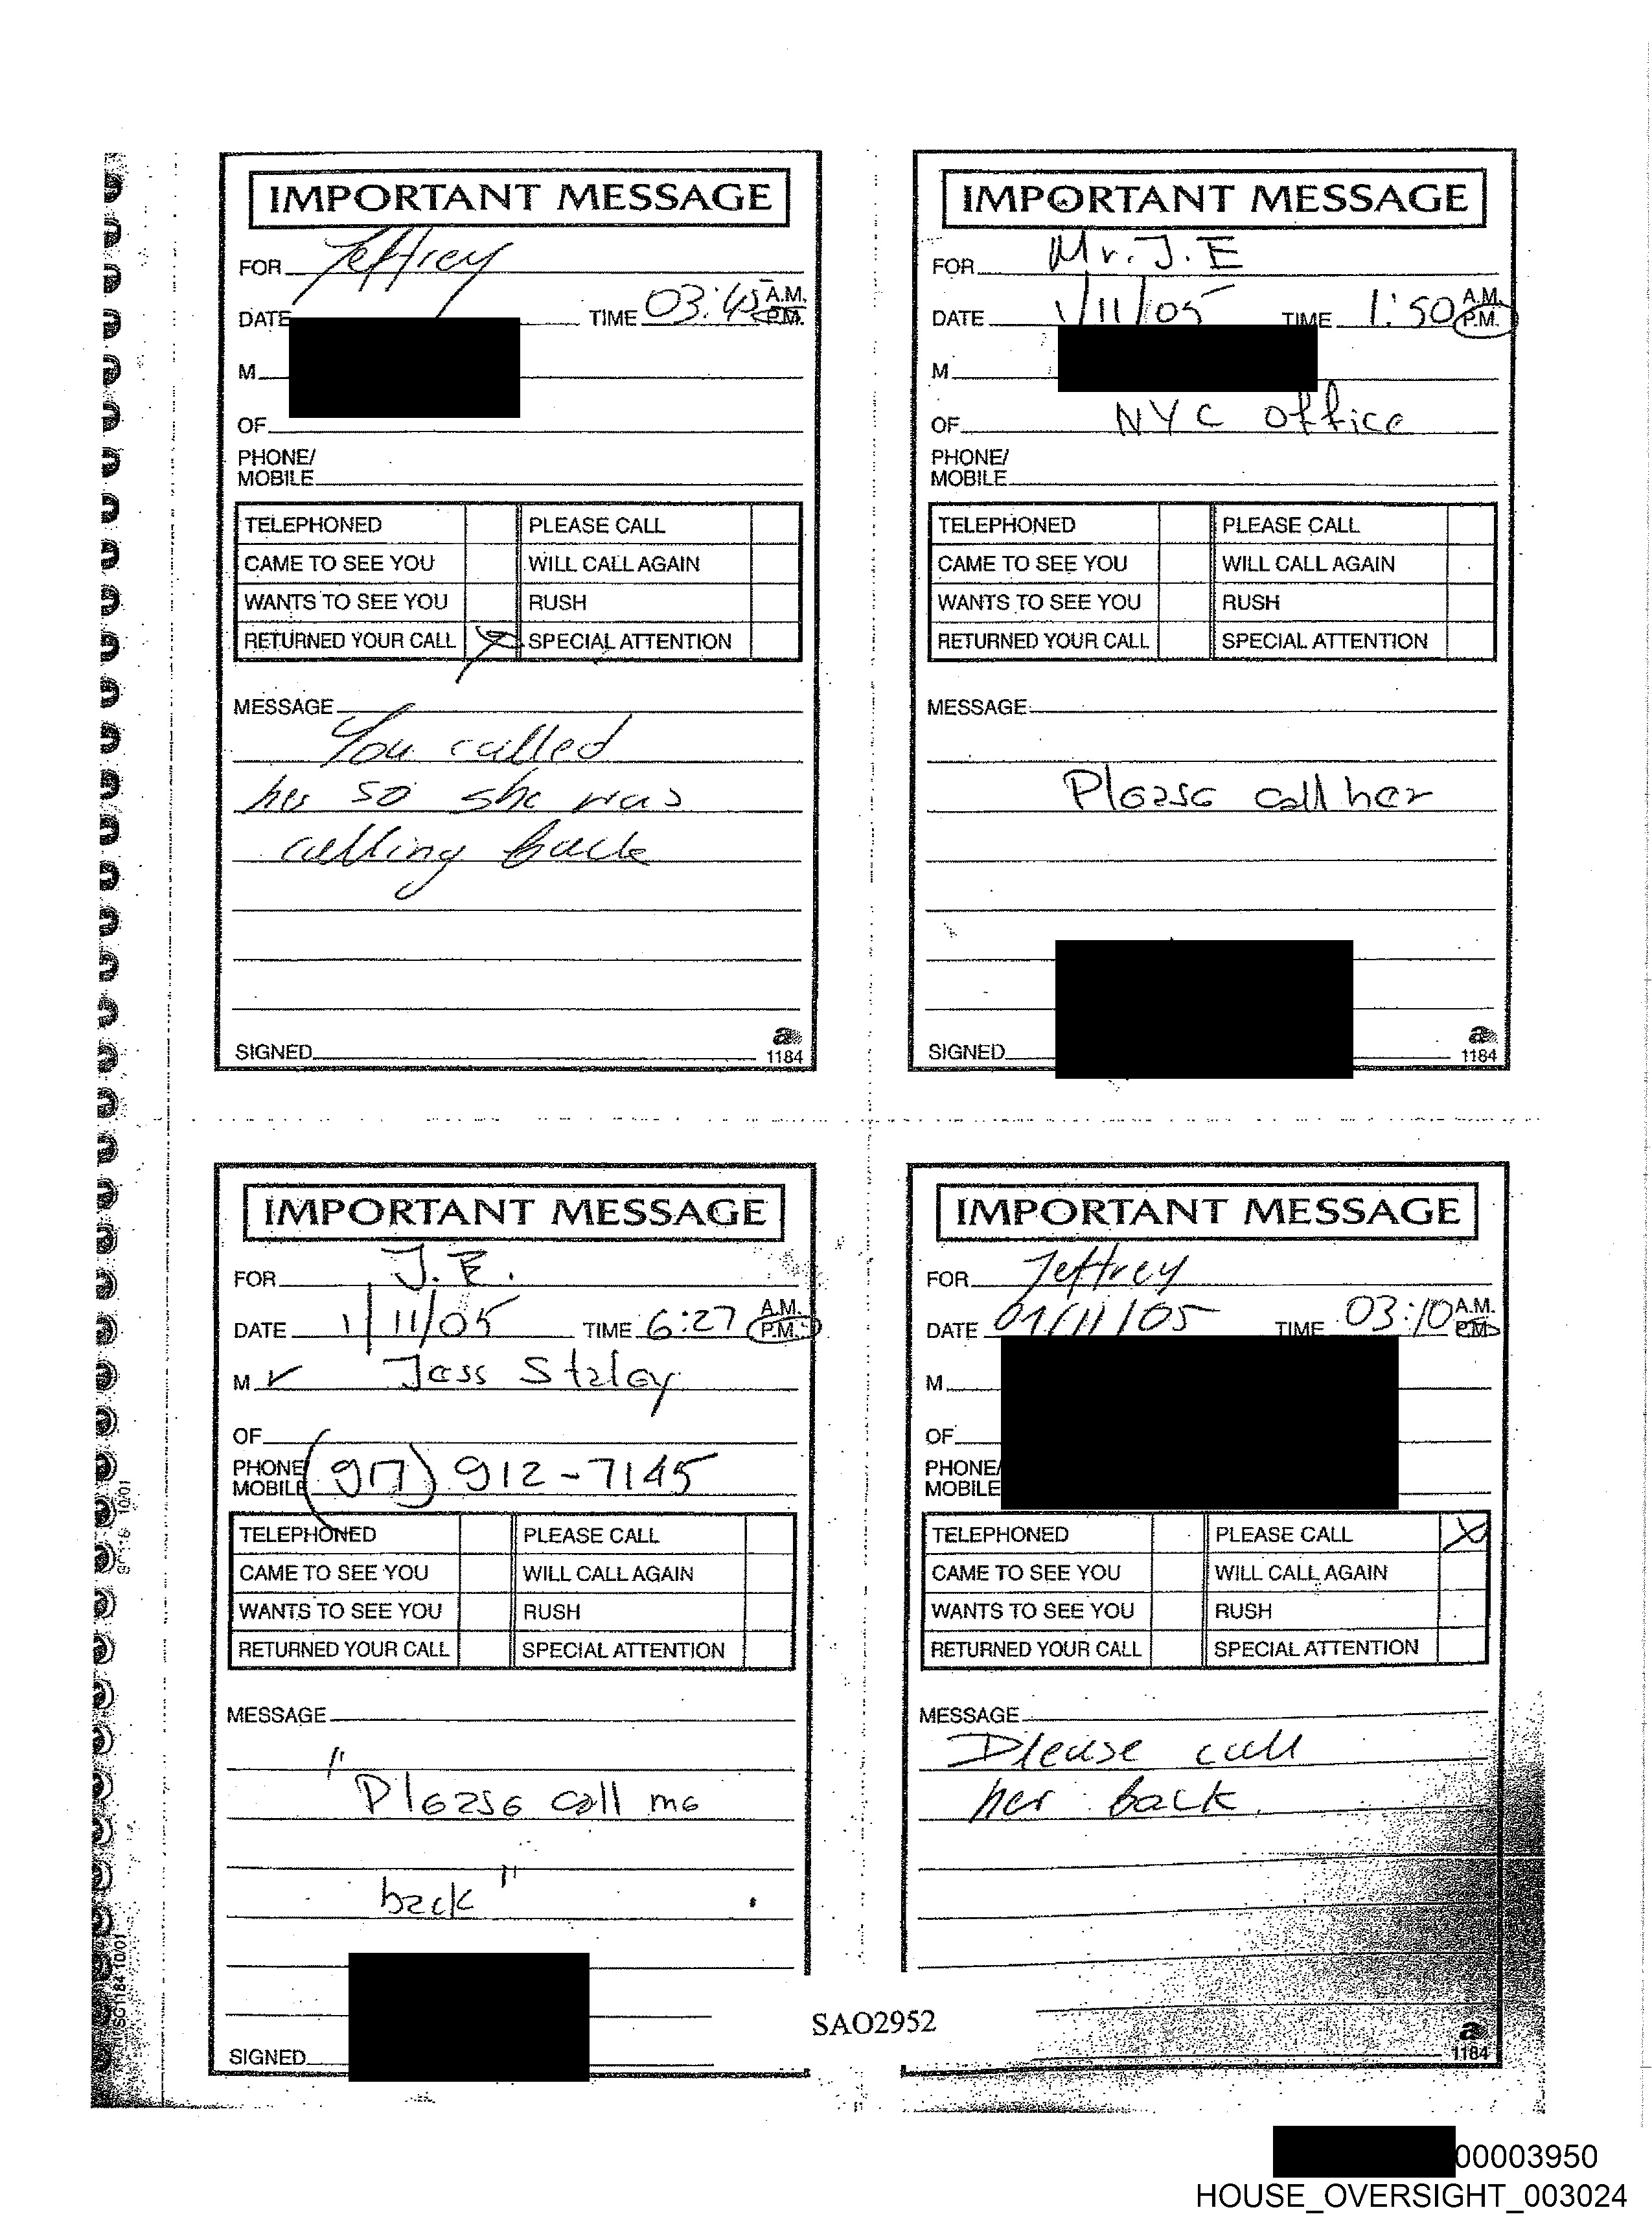 IMPORTANT MESSAGE
FOR Jeffrey
DATE TIME 03:45 A.M. P.M.
M
OF
PHONE/
MOBILE
TELEPHONED PLEASE CALL
CAME TO SEE YOU WILL CALL AGAIN
WANTS TO SEE YOU RUSH
RETURNED YOUR CALL X SPECIAL ATTENTION
MESSAGE
You called
her so she was
calling back
SIGNED
a
1184
IMPORTANT MESSAGE
FOR Mr. J.E
DATE 1/11/05 TIME 1:50 A.M. P.M.
M
OF NYC office
PHONE/
MOBILE
TELEPHONED PLEASE CALL
CAME TO SEE YOU WILL CALL AGAIN
WANTS TO SEE YOU RUSH
RETURNED YOUR CALL SPECIAL ATTENTION
MESSAGE
Please call her
SIGNED
a
1184
IMPORTANT MESSAGE
FOR J.E.
DATE 1/11/05 TIME 6:27 A.M. P.M.
M ✓ Jess Staley
OF
PHONE/
MOBILE (917) 912-7145
TELEPHONED PLEASE CALL
CAME TO SEE YOU WILL CALL AGAIN
WANTS TO SEE YOU RUSH
RETURNED YOUR CALL SPECIAL ATTENTION
MESSAGE
"Please call me
back"
SIGNED
IMPORTANT MESSAGE
FOR Jeffrey
DATE 01/11/05 TIME 03:10 A.M. P.M.
M
OF
PHONE/
MOBILE
TELEPHONED PLEASE CALL X
CAME TO SEE YOU WILL CALL AGAIN
WANTS TO SEE YOU RUSH
RETURNED YOUR CALL SPECIAL ATTENTION
MESSAGE
Please call
her back
a
1184
SG1184 10/01
SAO2952
00003950
HOUSE_OVERSIGHT_003024